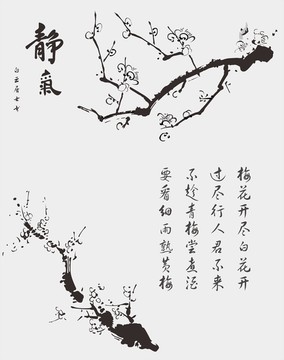 靜氣
梅花开尽白花开
过尽行人君不来
不趁青梅尝煮酒
要看细雨熟黄梅